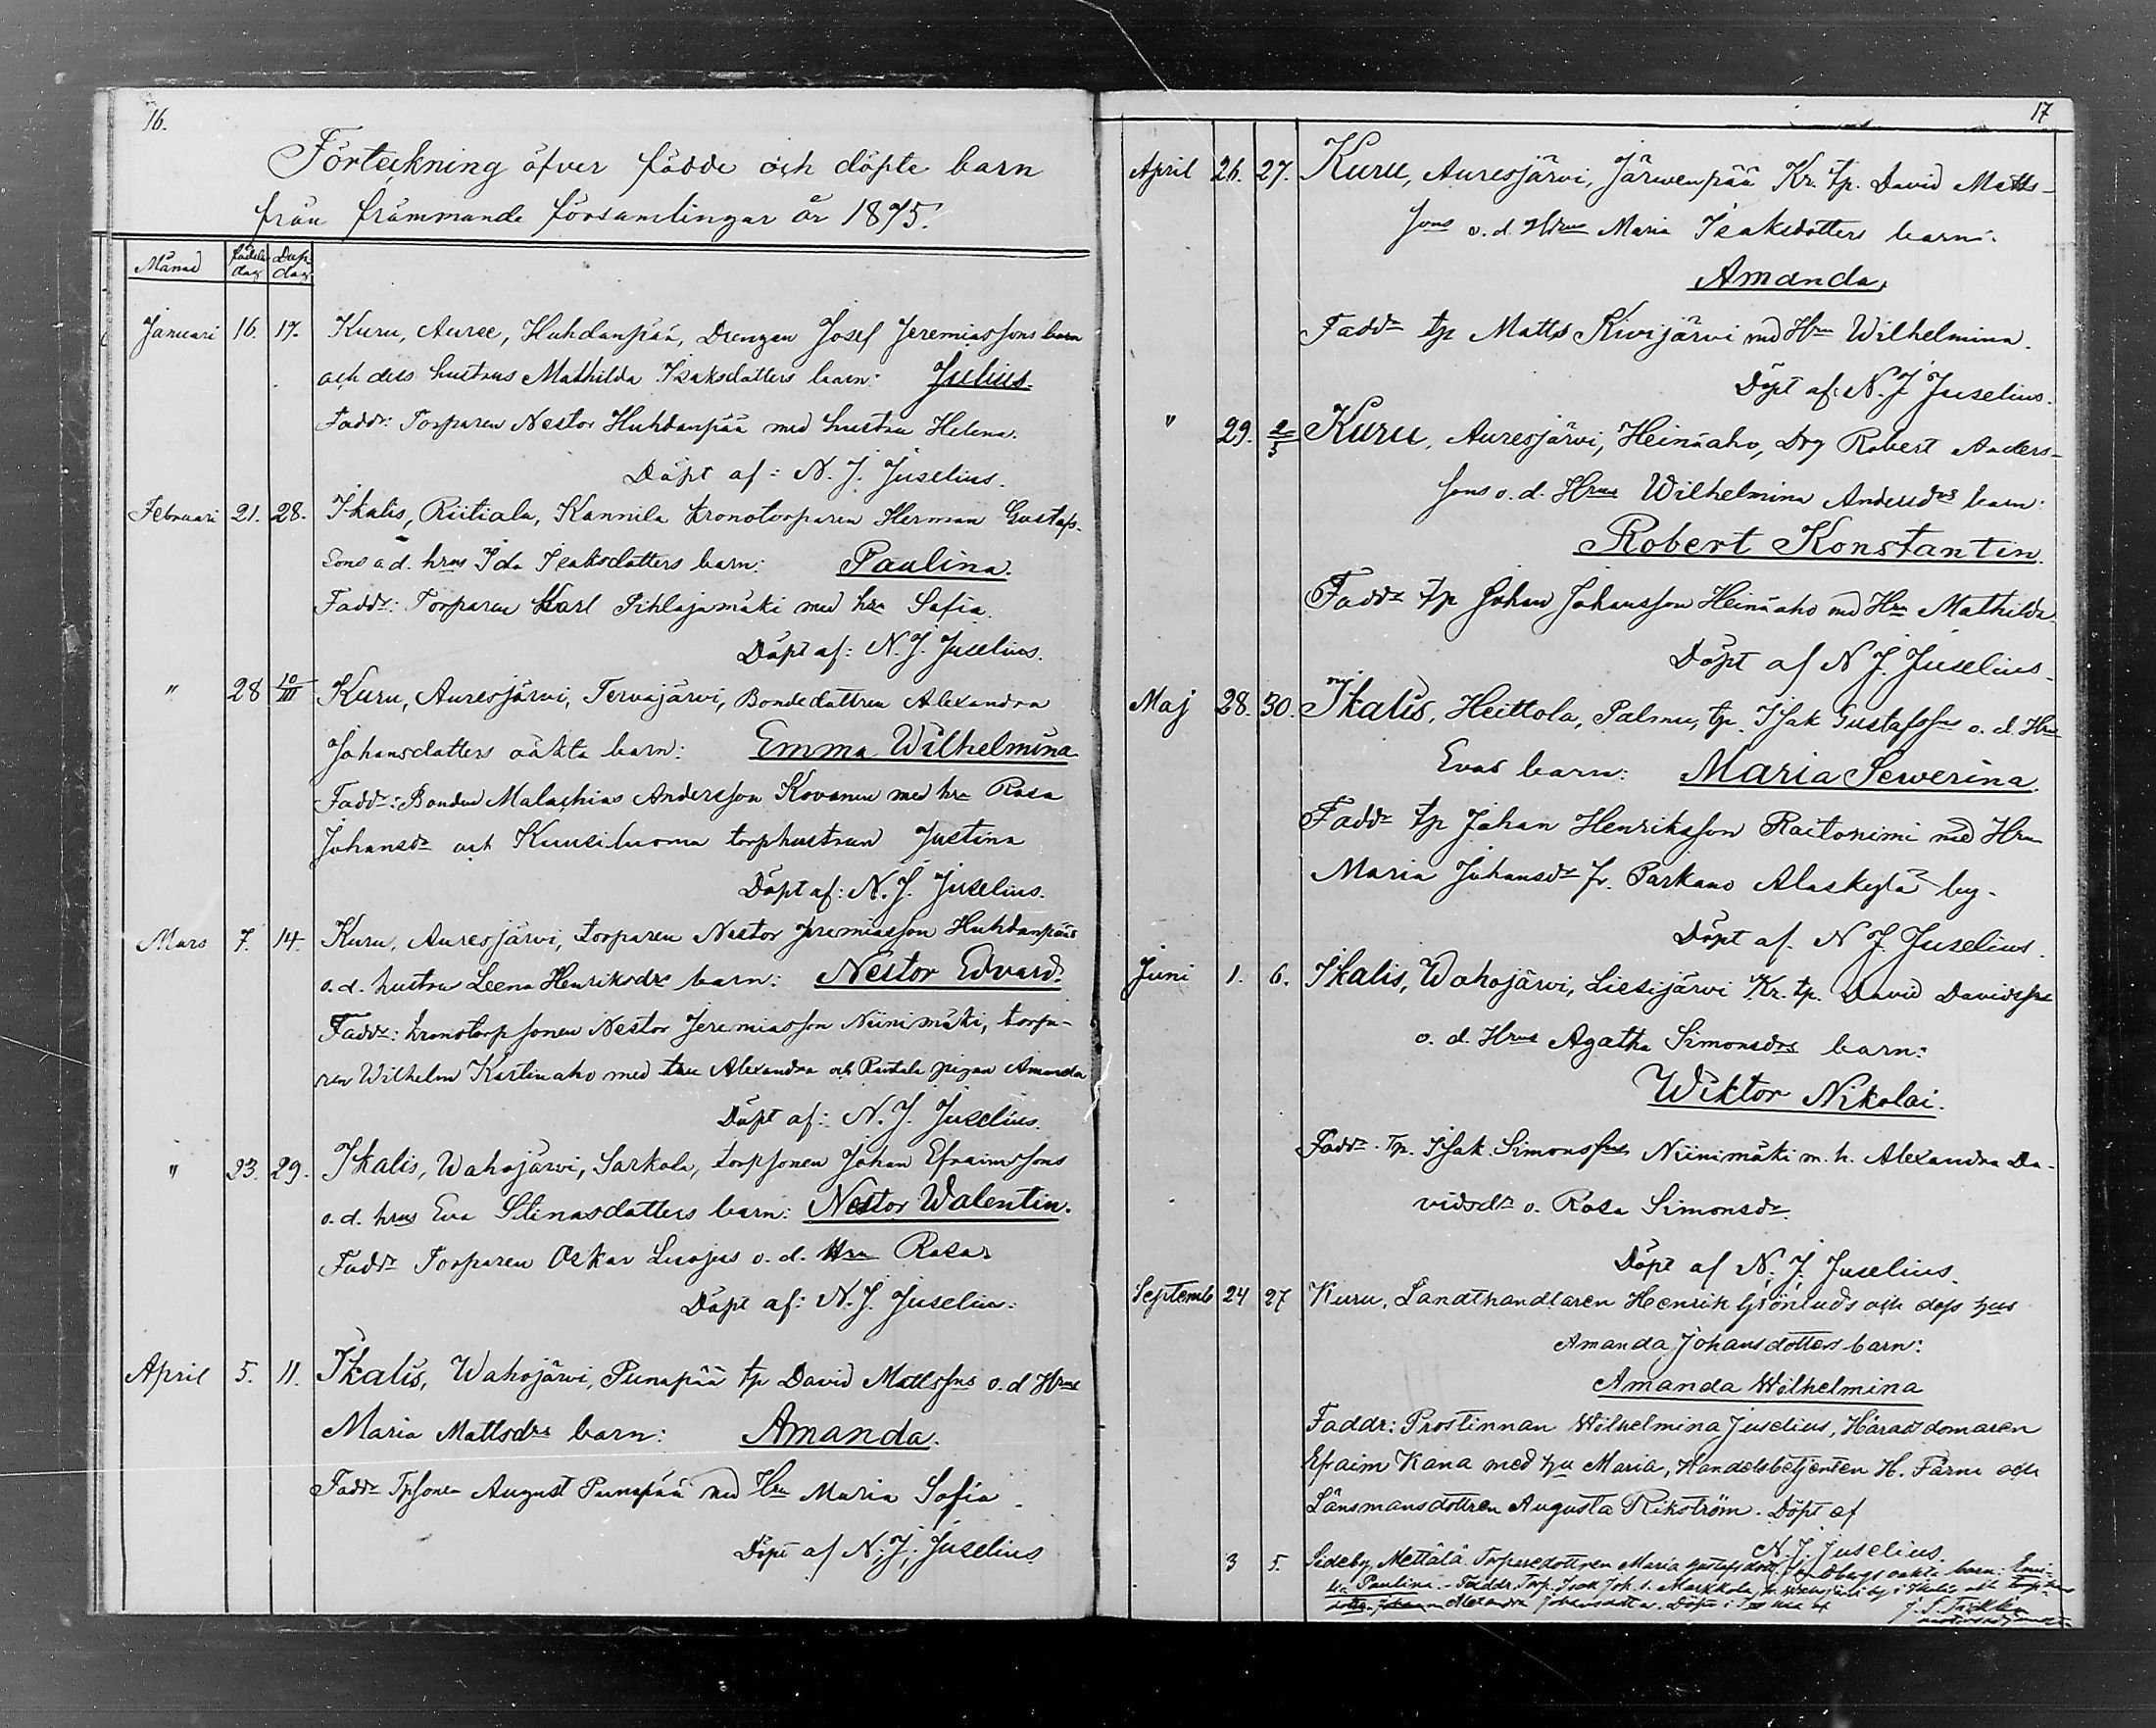 16.
Förteckning öfver födde och döpte barn
från främmande församlingar år 1875.
Månad födelse dag Dop dag
Januari 16. 17. Kuru, Auree, Huhdanpää, Drengen Josef Jeremiassons barn
och dess hustrus Mathilda Isaksdotters barn: Julius.
Faddr: Torparen Nestor Huhdanpää med hustru Helena.
Döpt af: N. J. Juselius.
Februari 21. 28. Ikalis, Riitiala, Kannila kronotorparen Herman Gustaf-
sons o.d. hrus Ida Isaksdotters barn: Paulina.
Faddr: Torparen Karl Pihlajamäki med hru Sofia.
Döpt af: N. J. Juselius.
" 28 10/III Kuru, Auresjärvi, Tervajärvi, Bondedottren Alexandra
Johansdotters oäkta barn: Emma Wilhelmina
Faddr: Bonden Malachias Andersson Kovanen med hru Rosa
Johansdr och Kuusiluoma torphustrun Justina
Döpt af: N. J. Juselius.
Mars 7. 14. Kuru, Auresjärvi, torparen Nestor Jeremiasson Huhdanpääs
o.d. hustru Leena Henriksdrs barn: Nestor Edvard.
Faddr: kronotorpsonen Nestor Jeremiasson Niinimäki, torpa-
ren Wilhelm Kartinaho med hru Alexandra och pigan Amanda
Döpt af: N. J. Juselius.
" 23. 29. Ikalis, Wahojärvi, Sarkola, torpsonen Johan Efraimssons
o.d. hrus Eva Stinasdotters barn: Nestor Walentin.
Faddr Torparen Oskar Luojus o.d. Hru Rosa
Döpt af: N. J. Juselius.
April 5. 11. Ikalis, Wahojärvi, Punapää tp David Mattssons o.d Hrus
Maria Mattsdrs barn: Amanda.
Faddr Tpsonen August Punapää med Hru Maria Sofia.
Döpt af N. J. Juselius
17
April 26. 27. Kuru, Auresjärvi, Järwenpää Kr. tp. David Matts-
sons o.d. Hrus Maria Isaksdotters barn:
Amanda,
Faddr tp Matts Kivijärvi med Hru Wilhelmina.
Döpt af: N. J Juselius.
" 29. 2/5 Kuru, Auresjärvi, Heinäaho, Drg Robert Anders-
sons o.d. Hrus Wilhelmina Andersdrs barn:
Robert Konstantin.
Faddr tp Johan Johansson Heinäaho med Hru Mathilda
Döpt af N J. Juselius.
Maj 28. 30. Ikalis, Heittola, Palmu, tp. Isak Gustafssons o.d. Hrus
Evas barn: Maria Sewerina.
Faddr tp Johan Henriksson Raitonimi med Hru
Maria Johansdr fr. Parkano Alaskylä by.
Döpt af. N J. Juselius.
Juni 1. 6. Ikalis, Wahojärvi, Liesijärvi Kr. tp. David Davidssons
o.d. Hrus Agatha Simonsdrs barn:
Wiktor Nikolai.
Faddr. Tp. Isak Simonsson Niinimäki m. h. Alexandra Da-
vidsdr o. Rosa Simonsdr.
Döpt af N. J. Juselius.
Septemb 24 27 Kuru, Landthandlaren Henrik Grönluds och dess hus
Amanda Johansdotters barn:
Amanda Wilhelmina
Faddr: Prostinnan Wilhelmina Juselius, Häradsdomaren
Efraim Kana med hu Maria, Handelsbetjenten H. Färm och
Länsmansdottren Augusta Rikström. Döpt af
N. J. Juselius.
3 5. Sideby, Mettälä Torparedottren Maria Gustafsdotter oäkta barn: Emi-
lia Paulina. - Faddr. Torp. Isak Joh. s. Markkola, by i Ikalis och
Alexandra Johansdotter. Döpt i